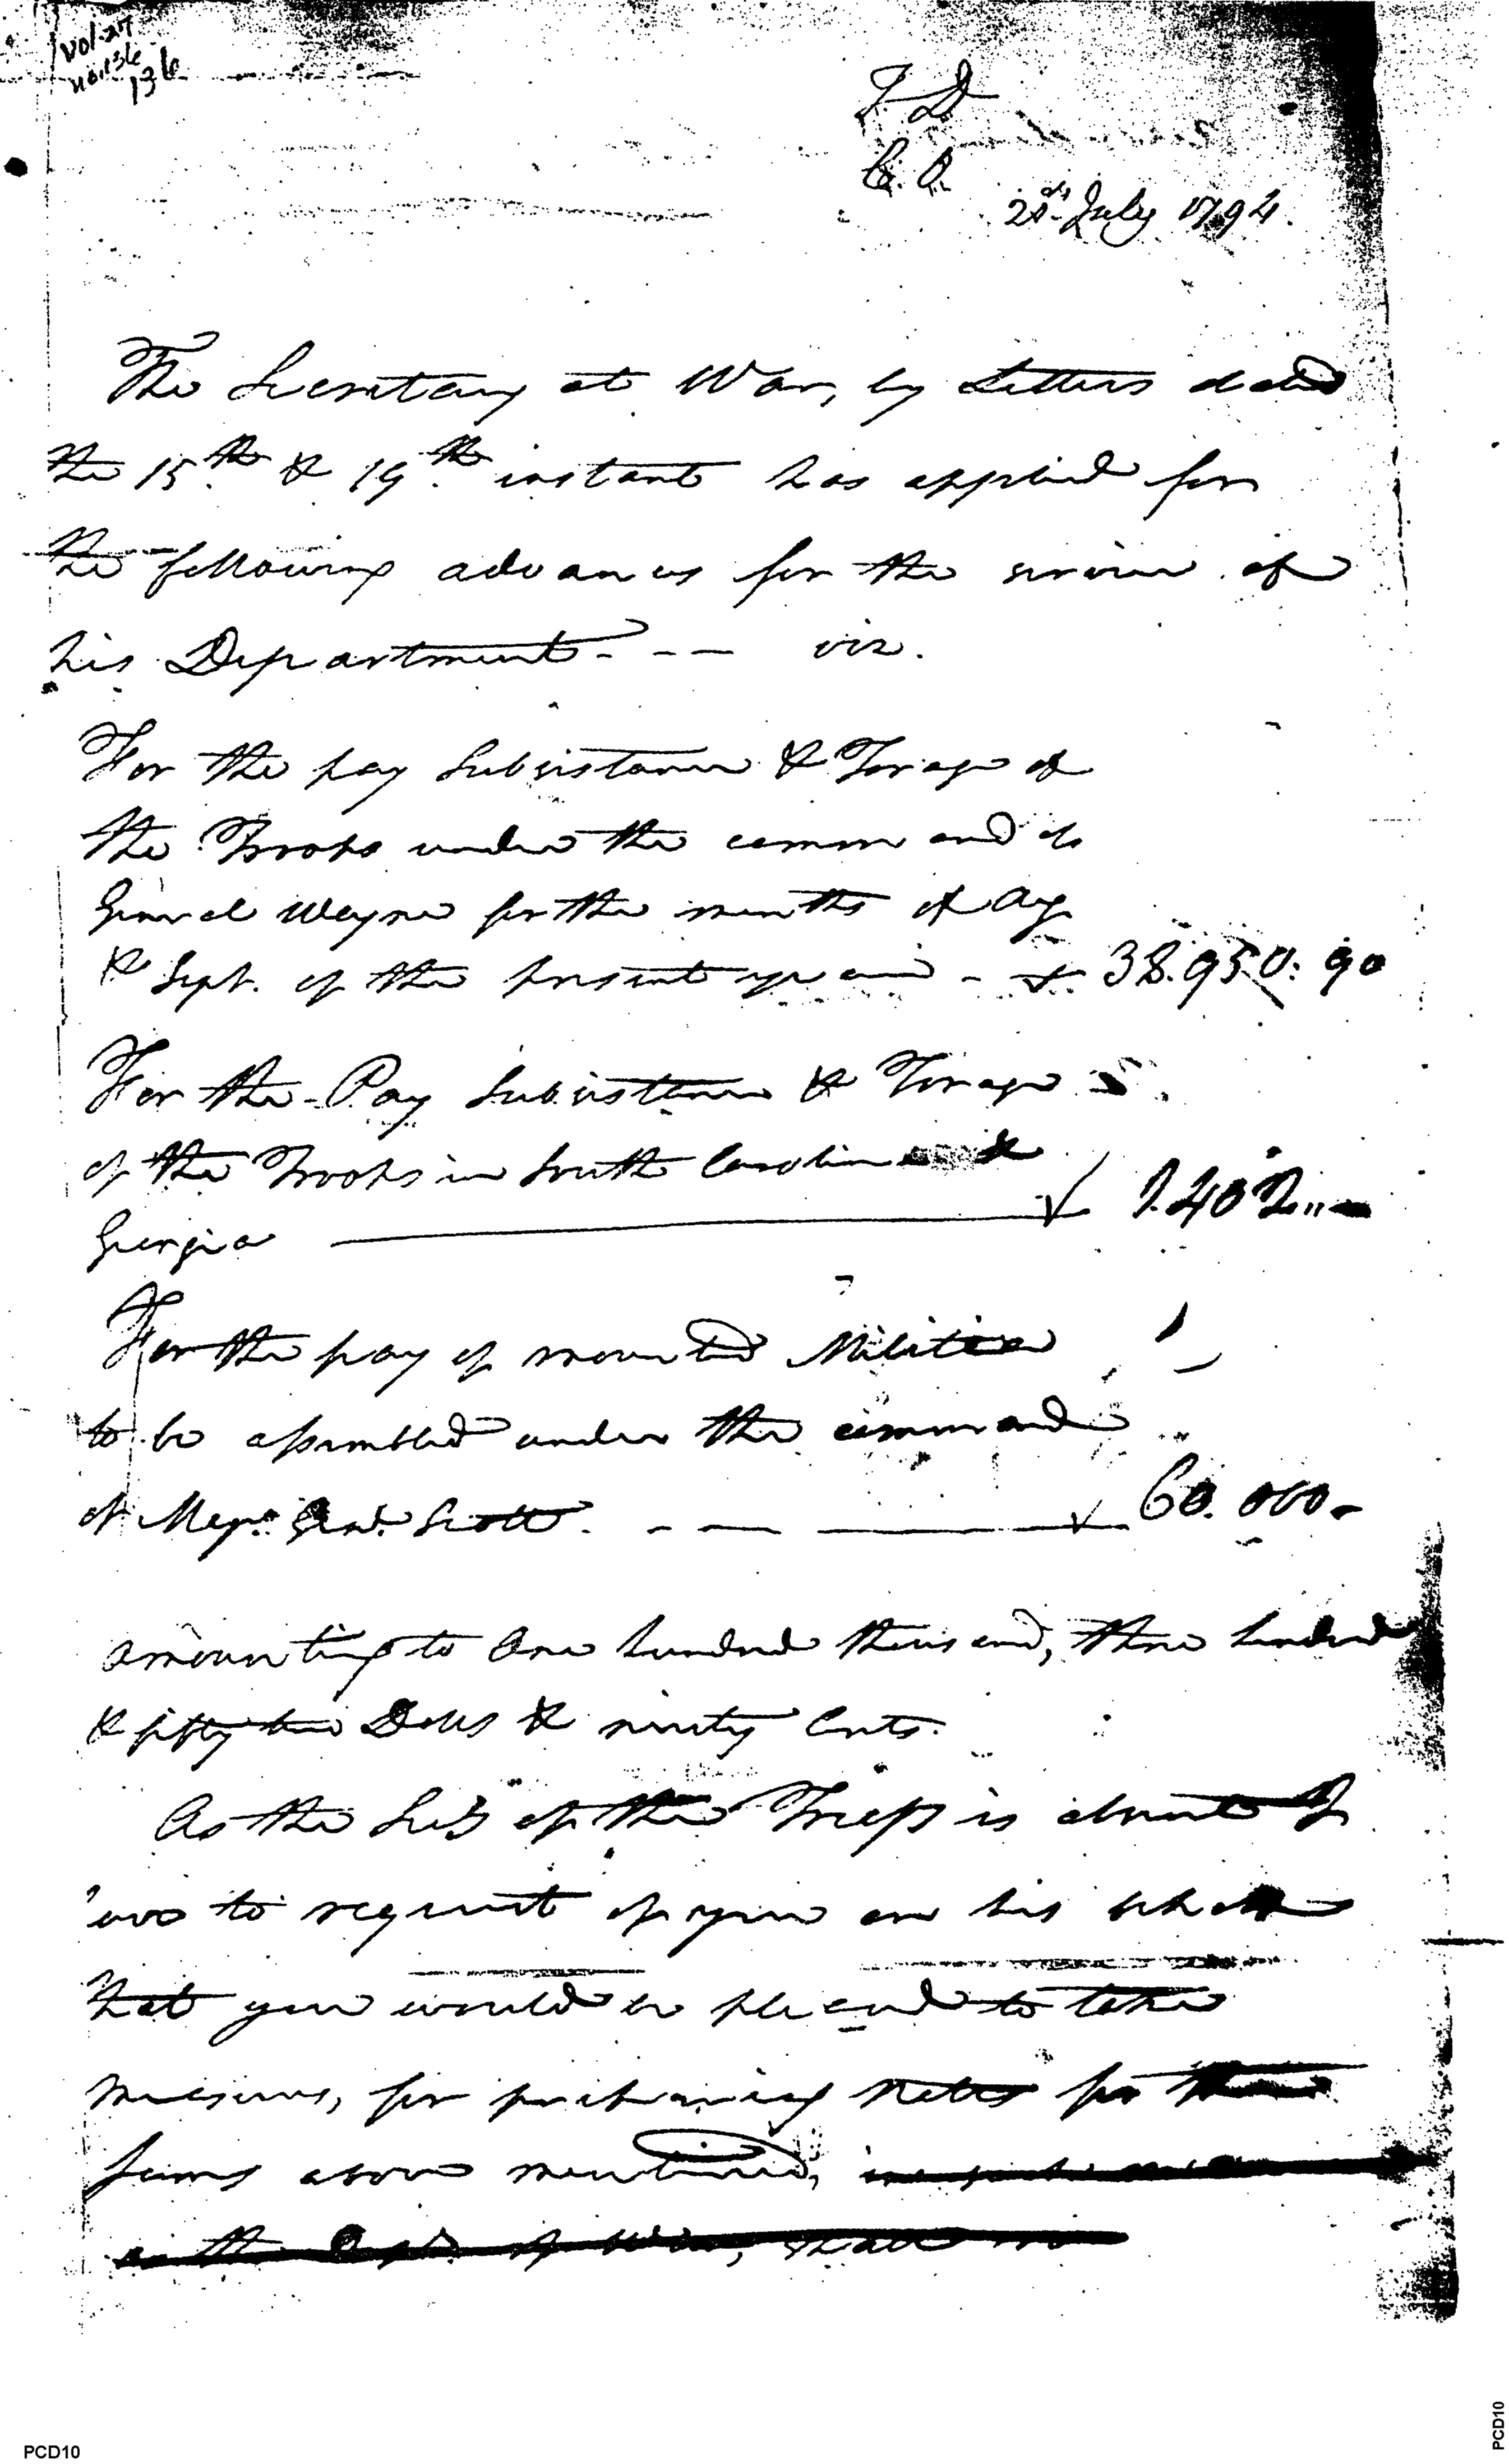 vol-27
no.136
136
T. D
C. O.
21st July 1794.
The Secretary at War, by Letters dated
the 15th. & 19th. instant has applied for
the following advances for the service of
his Department - - - viz.
For the pay Subsistance & Forage of
the Troops under the command of
General Wayne for the months of Aug
& Sept. of the present year - 38.950: 90
For the Pay Subsistence & Forage
of the Troops in South Carolina &
Georgia 1.402
For the pay of mounted Militia
to be assembled under the command
of Majr. Genl. Scott. - - 60.000-
amounting to One hundred thousand, three hundred
& fifty two Dolls & ninety Cents.
As the Secy of the Treasy is absent I
have to request of you on his behalf
that you would be pleased to take
measures, for furnishing the
sums above mentioned,
in the Dept. of War, shall
PCD10
PCD10